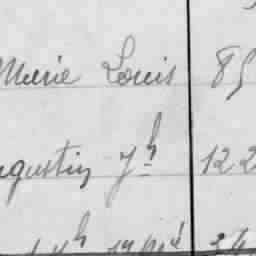 Marie Louis 85
ugustin Jh 122